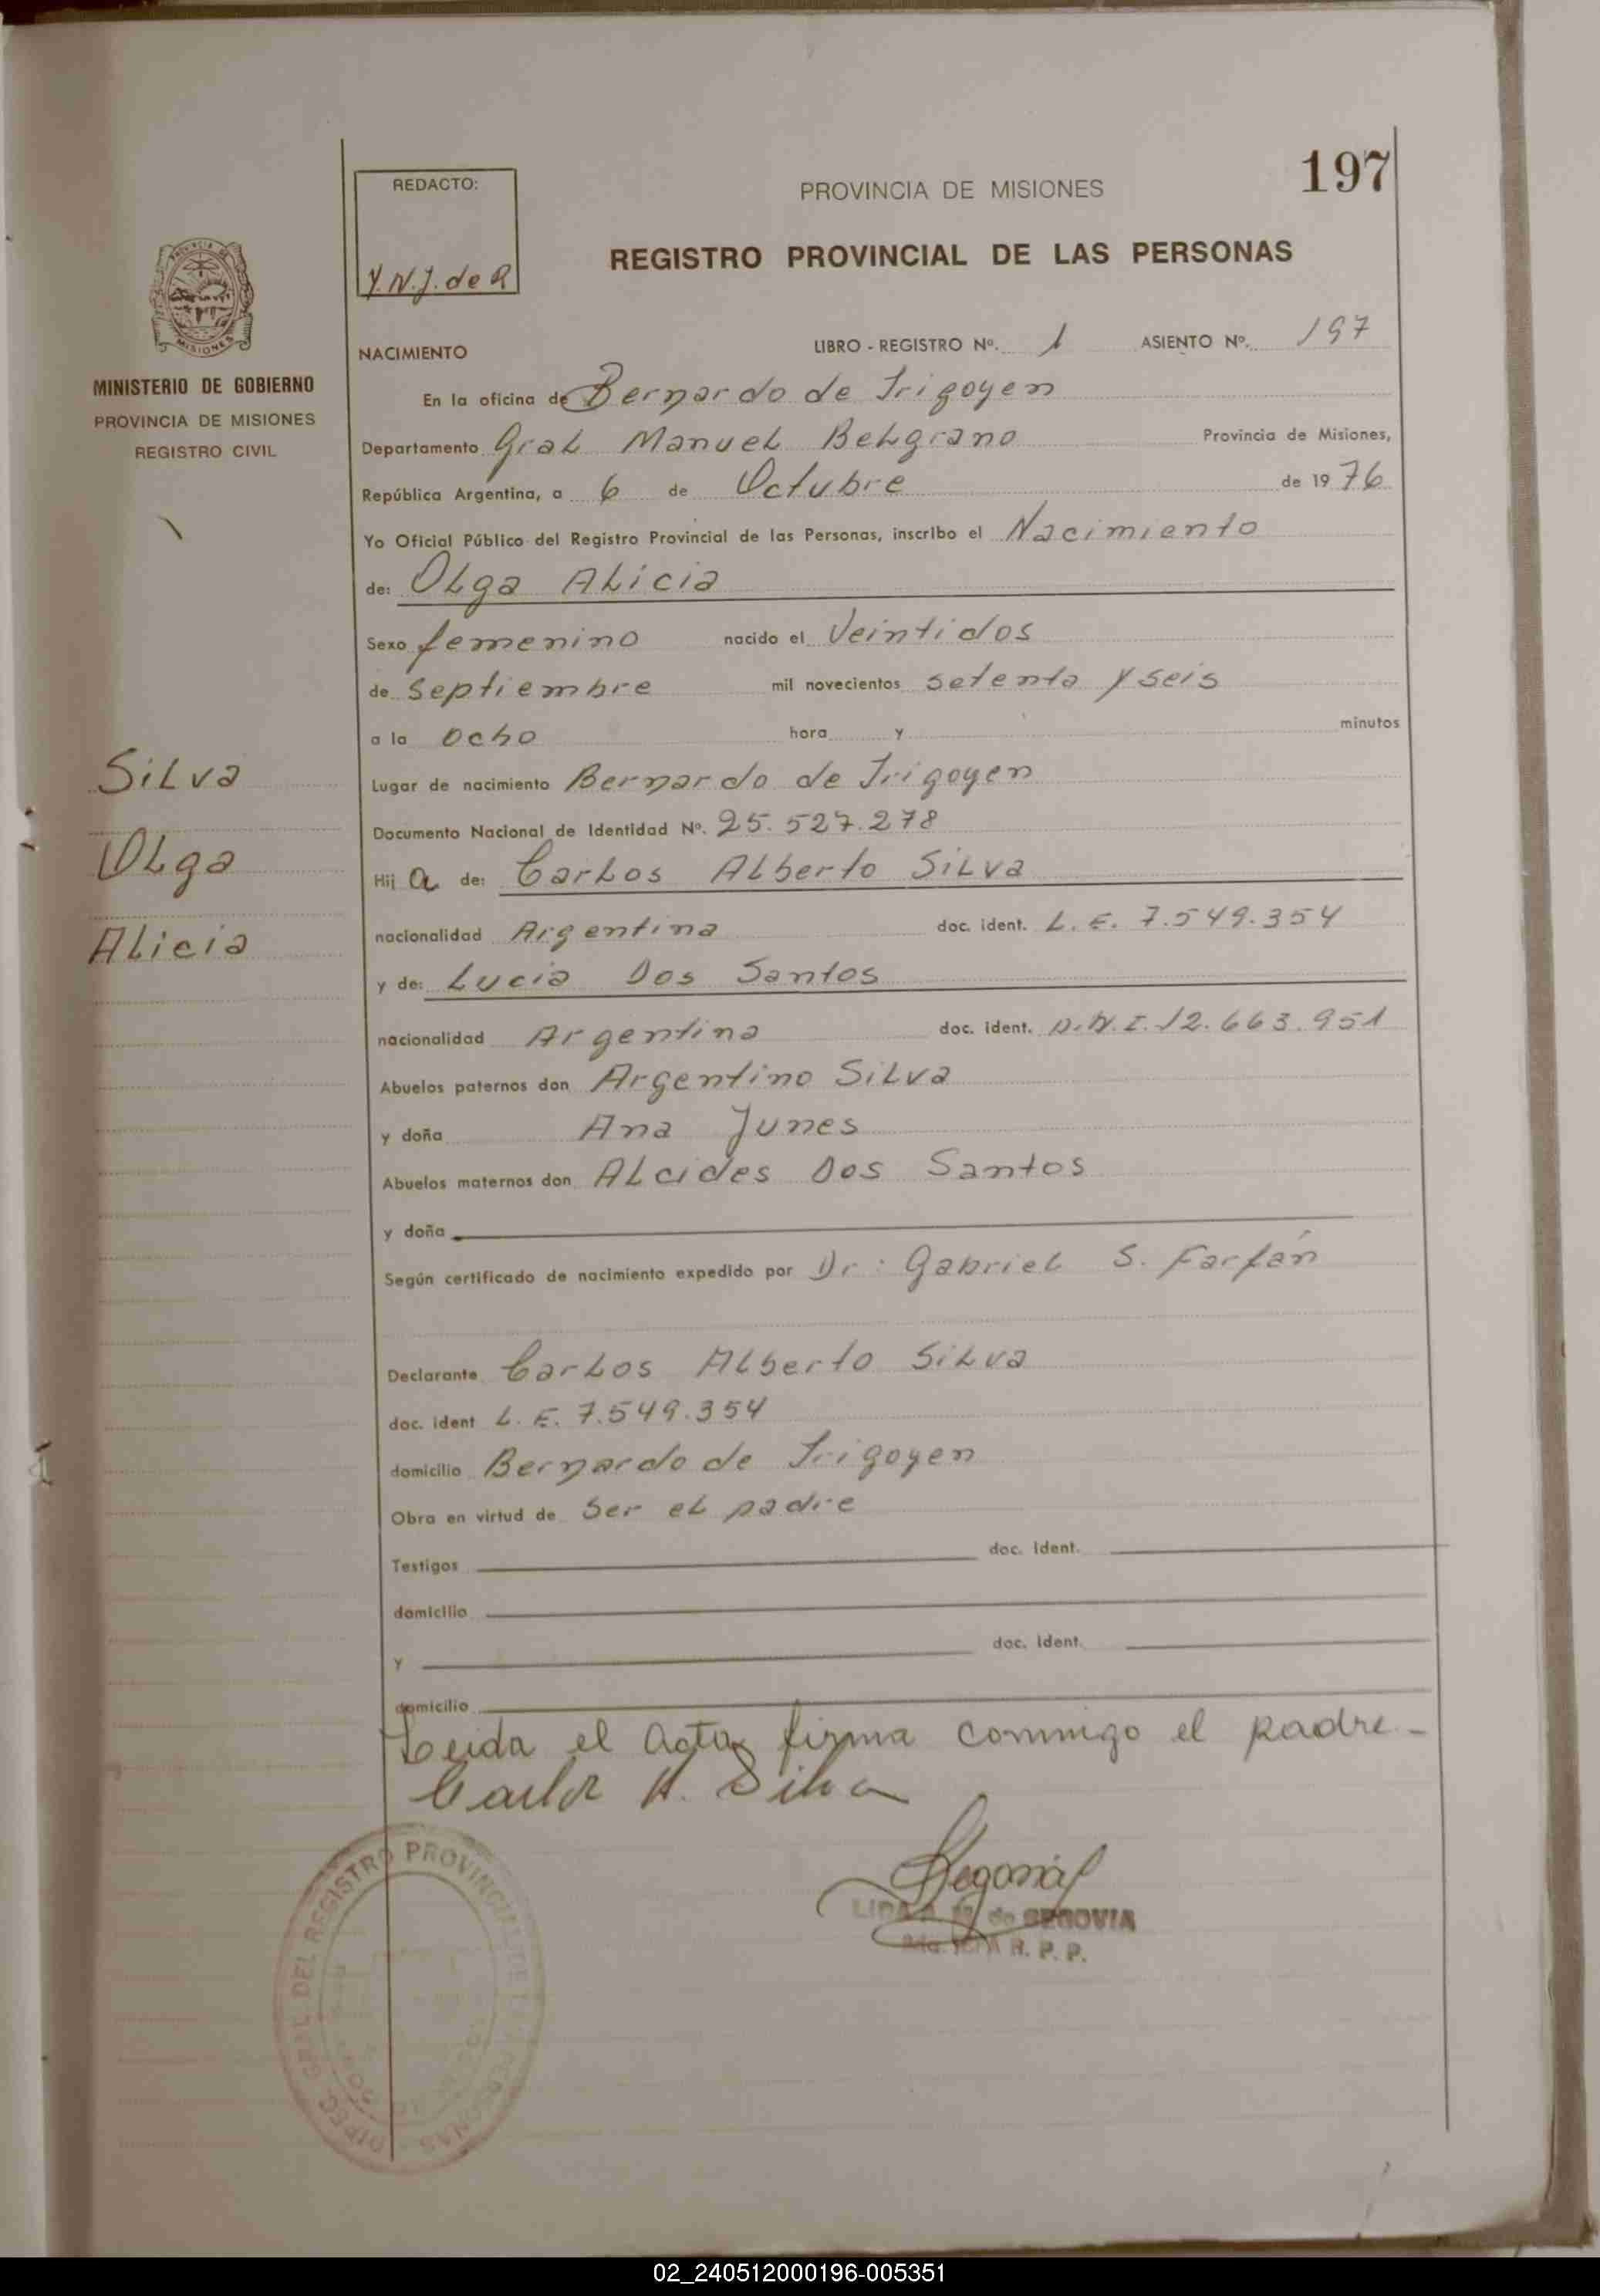 197
REDACTO:
Y.N.J. de R
PROVINCIA DE MISIONES
REGISTRO PROVINCIAL DE LAS PERSONAS
MISIONES
MINISTERIO DE GOBIERNO
PROVINCIA DE MISIONES
REGISTRO CIVIL
NACIMIENTO LIBRO - REGISTRO Nº. 1 ASIENTO Nº. 197
En la oficina de Bernardo de Irigoyen
Departamento Gral Manuel Belgrano Provincia de Misiones,
República Argentina, a 6 de Octubre de 1976
Yo Oficial Público del Registro Provincial de las Personas, inscribo el Nacimiento
de: Olga Alicia
Sexo femenino nacido el Veintidos
de Septiembre mil novecientos setenta y seis
a la ocho hora y minutos
Silva
Olga
Alicia
Lugar de nacimiento Bernardo de Irigoyen
Documento Nacional de Identidad Nº. 25.527.278
Hij a de: Carlos Alberto Silva
nacionalidad Argentina doc. ident. L.E. 7.549.354
y de: Lucia Dos Santos
nacionalidad Argentina doc. ident. D.N.I. 12.663.951
Abuelos paternos don Argentino Silva
y doña Ana Junes
Abuelos maternos don Alcides Dos Santos
y doña
Según certificado de nacimiento expedido por Dr: Gabriel S. Farfán
Declarante Carlos Alberto Silva
doc. ident L.E. 7.549.354
domicilio Bernardo de Irigoyen
Obra en virtud de Ser el padre
Testigos doc. ident.
domicilio
y doc. ident.
domicilio
Leida el acta, firma conmigo el padre.-
Carlos A. Silva
de SEGOVIA
R. P. P.
DEL REGISTRO PROVINCIAL DE LAS PERSONAS
02_240512000196-005351